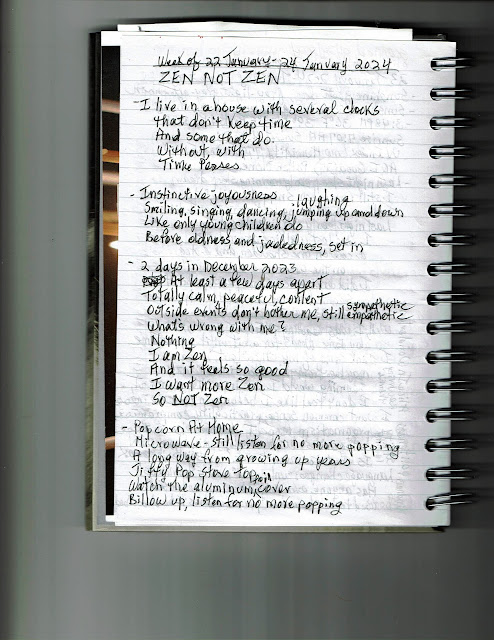 Week of 22 January - 24 January 2024
ZEN NOT ZEN
- I live in a house with several clocks
that don't keep time
And some that do.
Without, with
Time Passes
- Instinctive joyousness
Smiling, singing, dancing, laughing, jumping up and down
Like only young children do
Before oldness and jadedness, set in
- 2 days in December 2023
At least a few days apart
Totally calm, peaceful, content
Outside events don't bother me, still sympathetic empathetic
What's wrong with me?
Nothing
I am Zen
And it feels so good
I want more Zen
So NOT Zen
- Popcorn At Home
Microwave - still listen for no more popping
A long way from growing up years
Jiffy Pop stove top
Watch the aluminum foil cover
Billow up, listen for no more popping